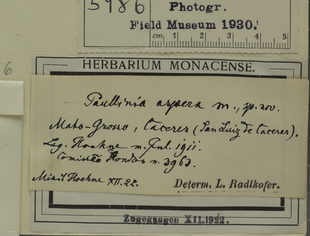 5986
Photogr.
Field Museum 1930.
cm 1 2 3 4 5
6
HERBARIUM MONACENSE.
Paullinia aspera m., sp. nov.
Mato-Grosso, Caceres (San Luiz de Caceres).
Leg. Hoehne m. Jul. 1911.
Comissão Rondon n. 3963.
Misit Hoehne XII.22.
Determ. L. Radlkofer.
Zugegangen XII.1922.